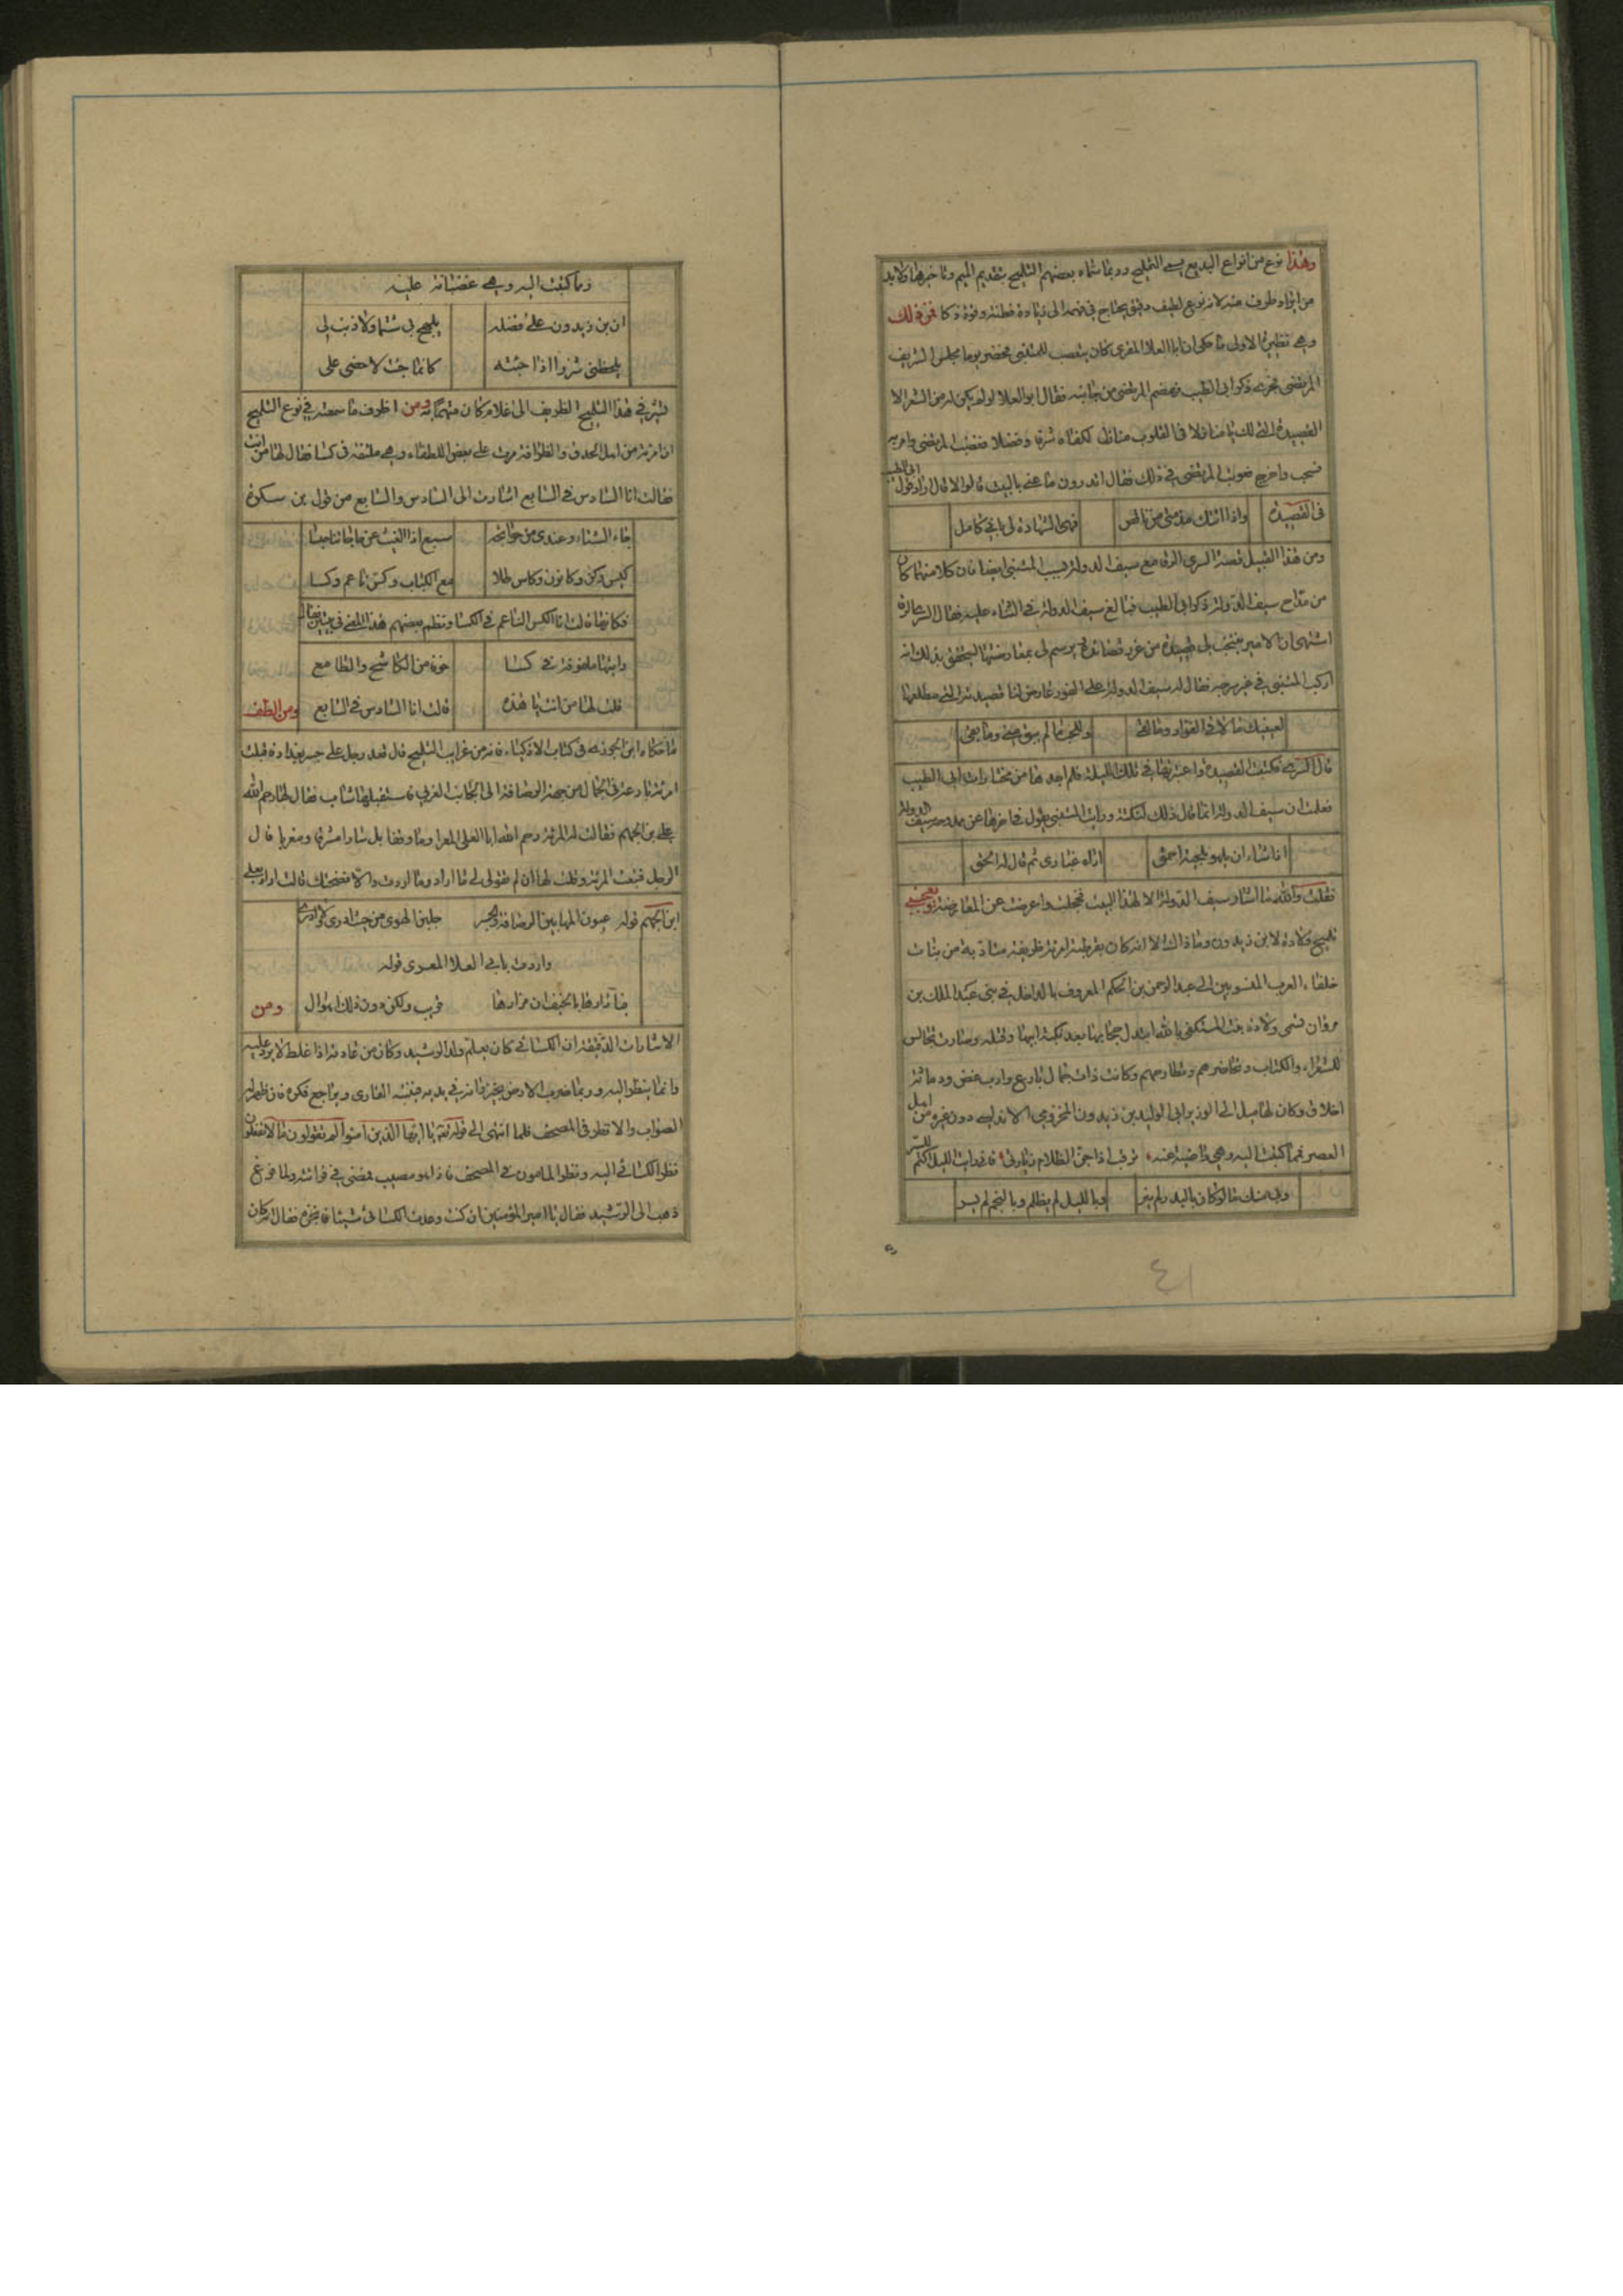 وهذا نوع من انواع البديع يسمى التلميح وربما سماه بعضهم التمليح بتقديم الميم وتاخيرها ولابد
من ايراد طرف منه لانه نوع لطيف دقيق يحتاج في فهمه الى زيادة فطنة وقوة ذكا فمن ذلك
وهي نظير الاولى ما حكى ان ابا العلا المعرى كان يتعصب للمتنبى فحضر يوما مجلس الشريف
المرتضى فجرى ذكر ابى الطيب فهضم المرتضى من جانبه فقال ابو العلا لو لم يكن له من الشعر الا
القصيدة التى لك يا منازل فى القلوب منازل لكفاه شرفا وفضلا فغضب المرتضى وامر به
فسحب واخرج فعوتب المرتضى فى ذلك فقال اتدرون ما عنى بالبيت قالوا لا قال اراد قول ابى الطيب
فى القصيدة واذا اتتك مذمتى من ناقص فهى الشهادة لى بانى كامل
ومن هذا القبيل قصة السرى الرفا مع سيف الدولة بسبب المتنبى ايضا فان كلا منهما كان
من مداح سيف الدولة ذكر ابى الطيب فبالغ سيف الدولة فى الثناء عليه فقال السرى
اشتهى ان الامير ينتخب لى قصيدة من غرر قصائده يرسم لى بمعارضتها ليتحقق بذلك انه
اركب المتنبى فى غير سرجه فقال له سيف الدولة على الفور عارض لنا قصيدته التى مطلعها
لعينيك ما لاقى الفؤاد وما لقى وللحب ما لم يبق منى وما بقى
قال السرى فكتبت القصيدة واعتبرتها فى تلك الليلة فلم اجدها من مختارات ابى الطيب
فعلمت ان سيف الدولة انما قال ذلك لنكتة ورايت المتنبى يقول فى اخرها عن ممدوحه سيف الدولة
اذا شاء ان يلهو بلحية احمق اراه غبارى ثم قال له الحق
فقلت والله ما اشار سيف الدولة الا لهذا البيت فخجلت واعرضت عن المعارضة
تلميح ولادة لابن زيدون وما ذاك الا انه كان بقرطبة امرئة ظريفة متادبة من بنات
خلفاء العرب المنسوبين الى عبد الرحمن بن الحكم المعروف بالداخل فى بنى عبد الملك بن
مروان تسمى ولادة بنت المستكفى بالله ابتذل حجابها بعد نكبة ابيها وقتله وصارت تجالس
للشعراء والكتاب وتحاضرهم وتطارحهم وكانت ذات جمال بارع وادب غض ودماثة
اخلاق وكان لها ميل الى الوزير ابى الوليد بن زيدون المخزومى الاندلسى دون غيره من اهل
العصر فمما كتبت اليه وهى راضية عنه ترقب اذا جن الظلام زيارتى فانى رايت الليل اكتم للسر
وبى منك ما لو كان بالبدر لم ينر وبالليل لم يظلم وبالنجم لم يسر
٤١
ومما كتبت اليه وهى غضبانة عليه
ان بن زيدون على فضله يلهج بى شتما ولا ذنب لى
يلحظنى شزرا اذا جئته كانما جئت لاخصى على
تشير فى هذا التلميح الظريف الى غلام كان متهما به ومن اظرف ما سمعته فى نوع التلميح
ان امرئة من اهل الحذق والظرافة مرت على بعض اللطفاء وهى ملتفة فى كسا فقال لها من انت
فقالت انا السادس فى السابع اشارت الى السادس والسابع من قول بن سكرة
جاء الشتاء وعندى من حوائجه سبع اذا الغيث عن حاجاتنا حبسا
كيس وكن وكانون وكاس طلا مع الكباب وكس ناعم وكسا
فكانها قالت انا الكس الناعم فى الكسا ونظم بعضهم هذا المعنى فى بيتين فقال
رايتها ملفوفة فى كسا خوف من الكاشح والطامع
قلت لها من انت يا هذه قالت انا السادس فى السابع ومن الطف
ما حكاه ابن الجوزى فى كتاب الاذكياء فانه من غرايب التلميح قال قعد رجل على جسر بغداد فاقبلت
امرئة بارعة فى الجمال من جهة الرصافة الى الجانب الغربى فاستقبلها شاب فقال لها رحم الله
على بن الجهم فقالت له المرئة رحم الله ابا العلى المعرا وما وقفا بل سارا مشرقا ومغربا قال
الرجل فتبعت المرئة وقلت لها ان لم تقولى لى ما اراد وما اردت والا فضحتك قالت اراد بعلى
ابن الجهم قوله عيون المها بين الرصافة والجسر جلبن الهوى من حيث ادرى ولا ادرى
واردت بابى العلا المعرى قوله
فيا دارها بالخيف ان مزارها قريب ولكن دون ذلك اهوال ومن
الاشارات الدقيقة ان الكسائى كان يعلم ولد الرشيد وكان من عادته اذا غلط لا يرد عليه
وانما ينظر اليه وربما ضرب الارض بخيزرانة فى يده فيتنبه القارى ويراجع فكره فان ظهر له
الصواب والا نظر فى المصحف فلما انتهى الى قوله تعالى يا ايها الذين امنوا لم تقولون ما لا تفعلون
نظر الكسائى اليه ونظر المامون فى المصحف فاذا هو مصيب فمضى فى قرائته ولما فرغ
ذهب الى الرشيد فقال يا امير المؤمنين ان كنت وعدت الكسائى شيئا فانجزه فقال له كان